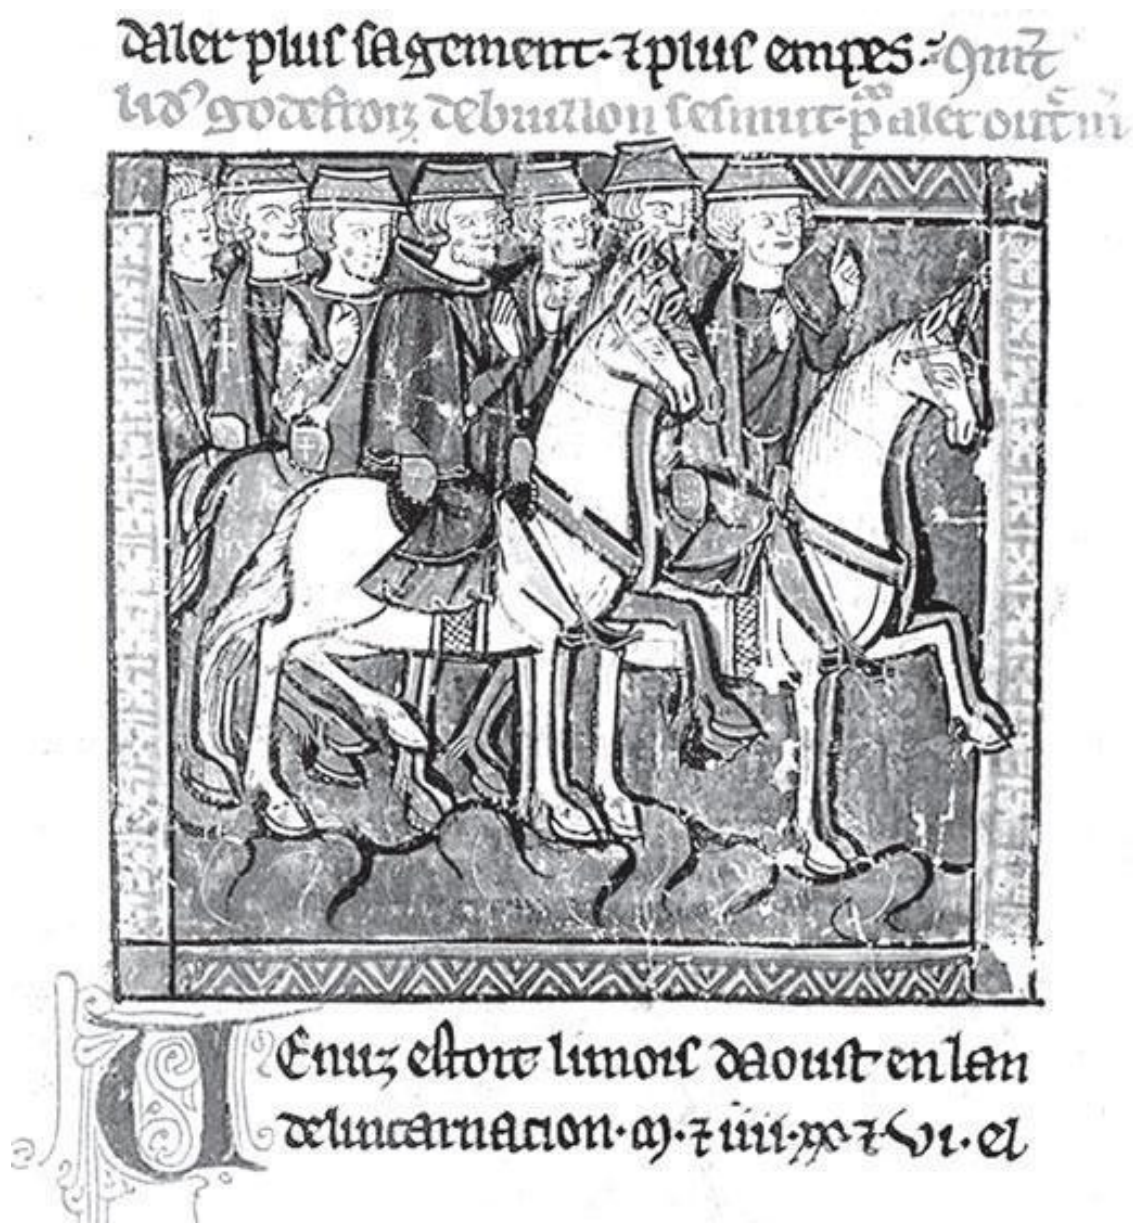 daler plus sagement · ⁊ plus empes ·
lid᾽ godefroiz de buillon sesmut · aler
Venuz estoit li mois daoust en lan
de lincarnacion · m · ⁊ iiii · xx · ⁊ vi · el